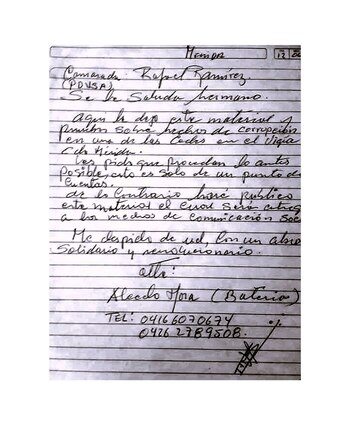 Memos
12
Camarada: Rafael Ramírez.
(PDVSA)
Se le Saluda hermano.
Aqui le dejo este material y
pruebas sobre hechos de corrupción
en una de las Cedes en el Vigia
Edo Mérida.
Les pido que procedan lo antes
posible, esto es solo de un punto de
Cuentas.
de lo Contrario haré publico
este material el Cual Será
a los medios de Comunicación Soc
Me despido de ud, Con un abra
Solidario y revolucionario.
Att:
Alcedo Mora (Bateria)
TEL: 04166070674
0426 2789508.